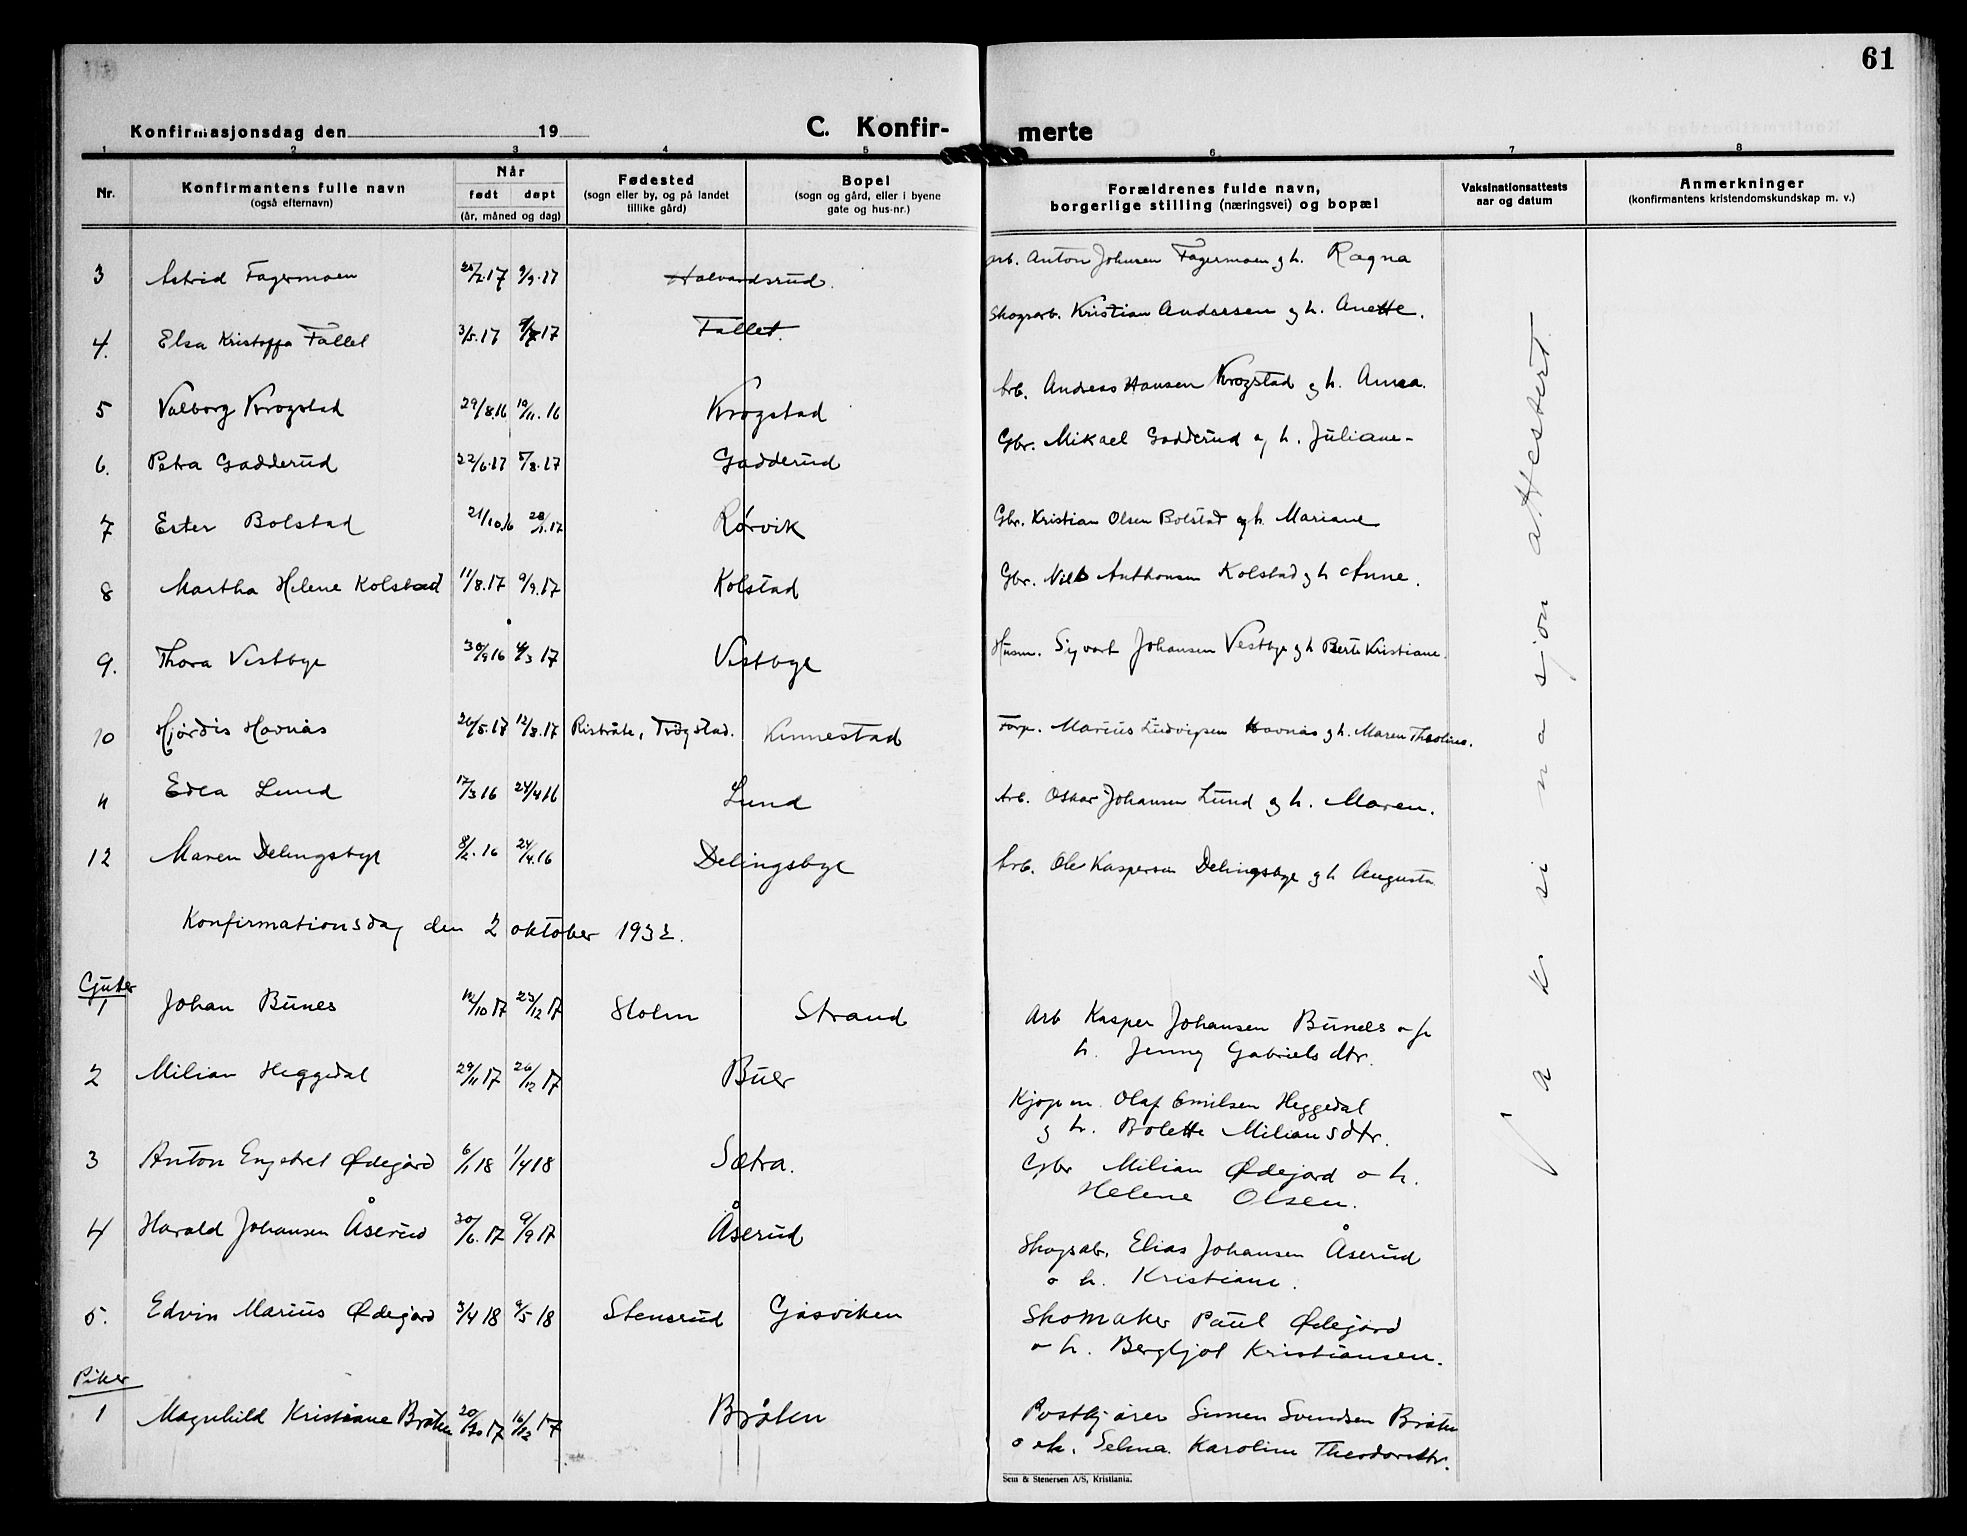 61
Konfirmasjonsdag den 19
C. Konfir- merte
1 2 3 4 5 6 7 8
Nr. Konfirmantens fulle navn (også efternavn) Når født døpt (år, måned og dag) Fødested (sogn eller by, og på landet tillike gård) Bopel (sogn og gård, eller i byene gate og hus-nr.) Forældrenes fulde navn, borgerlige stilling (næringsvei) og bopæl Vaksinationsattests aar og datum Anmerkninger (konfirmantens kristendomskundskap m. v.)
3 Astrid Fagermoen 9/9.17 Halvardsrud. Anton Johnsen Fagermoen g h. Ragna
4. Elsa Kristoffa Fallet 3/5.17 Fallet. Skogsarb. Kristian Andersen g h. Anette.
5 Valborg Krogstad 29/8.16 19/11.16 Krogstad Arb. Andreas Hansen Krogstad g h. Anna.
6. Petra Gadderud 22/6.17 5/8.17 Gadderud Gbr. Mikael Gadderud g h. Juliane-
7 Ester Bolstad 21/10.16 28/1.17 Rørvik Gbr. Kristian Olsen Bolstad g h. Mariane
8 Martha Helene Kolstad 11/8.17 9/9.17 Kolstad Gbr. Nils Anthonsen Kolstad g h Anne.
9. Thora Vestbye 30/9 16 4/3 17 Vestbye Husm. Sigvart Johansen Vestbye g h Berte Kristiane.
10 Hjørdis Havnås 26/5.17 12/8.17 Ristvåte, Trøgstad. Kinnestad Forp. Marius Ludvigsen Havnås g h. Maren Theoline.
11 Edla Lund 17/3 16 24/4 16 Lund Arb. Oskar Johansen Lund g h. Maren.
12 Maren Delingsbye 8/2.16 24/4.16 Delingsbye Arb. Ole Kaspersen Delingsbye g h Augusta
Konfirmationsdag den 2 oktober 1932.
Gutter
1 Johan Bunes 12/10 17 23/12 17 Holm Strand Arb Kasper Johansen Bunes o
h. Jenny Gabrielsdtr.
2 Milian Heggedal 29/11 17 26/12 17 Buer Kjøpm. Olaf Emilsen Heggedal
g h. Bolette Miliansdtr.
3 Anton Engebret Ødegård 6/1 18 1/4 18 Sætra. Gbr Milian Ødegård o h.
Helene Olsen.
4 Harald Johansen Åserud 30/6.17 9/9 17 Åserud Skogsab. Elias Johansen Åserud
o h. Kristiane.
5. Edvin Marius Ødegård 3/4 18 9/5 18 Stensrud Gåsviken Skomaker Paul Ødegård
o h. Bergljot Kristiansen.
Piker
1 Magnhild Kristiane Bråten 20/10 17 16/12 17 Bråten Postkjører Simen Svendsen Bråten
o h. Selma Karoline Theodorsdtr.
Vaksinasjon attestert.
Sem & Stenersen A/S, Kristiania.